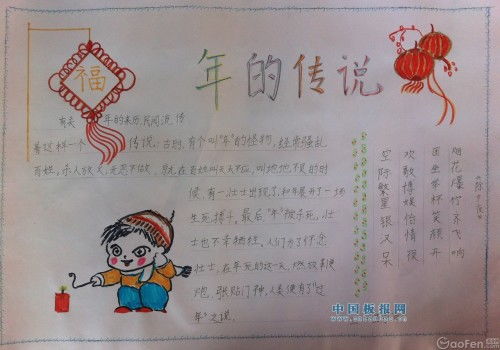 福
年的传说
有关 年的来历,民间流传
着这样一个 传说:古时,有个叫"年"的怪物,经常骚乱
百姓,杀人放火,无恶不做,就在百姓叫天天不应,叫地地不灵的时
候,有一壮士出现了,和年展开了一场
生死搏斗,最后"年"被杀死,壮
士也不幸牺牲。人们为了怀念
壮士,在年死的这一天,燃放鞭
炮,张贴门神,人类便有了"过
年"之说。
《除夕夜》
烟花爆竹齐飞响
围坐举杯笑颜开
欢歌博娱怡情夜
空际繁星银汉呆
中国板报网
GaoFen.com